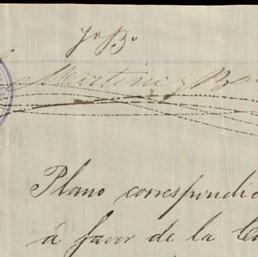 Vº Bº
Martinez y B
Plano correspondie
á favor de la Co